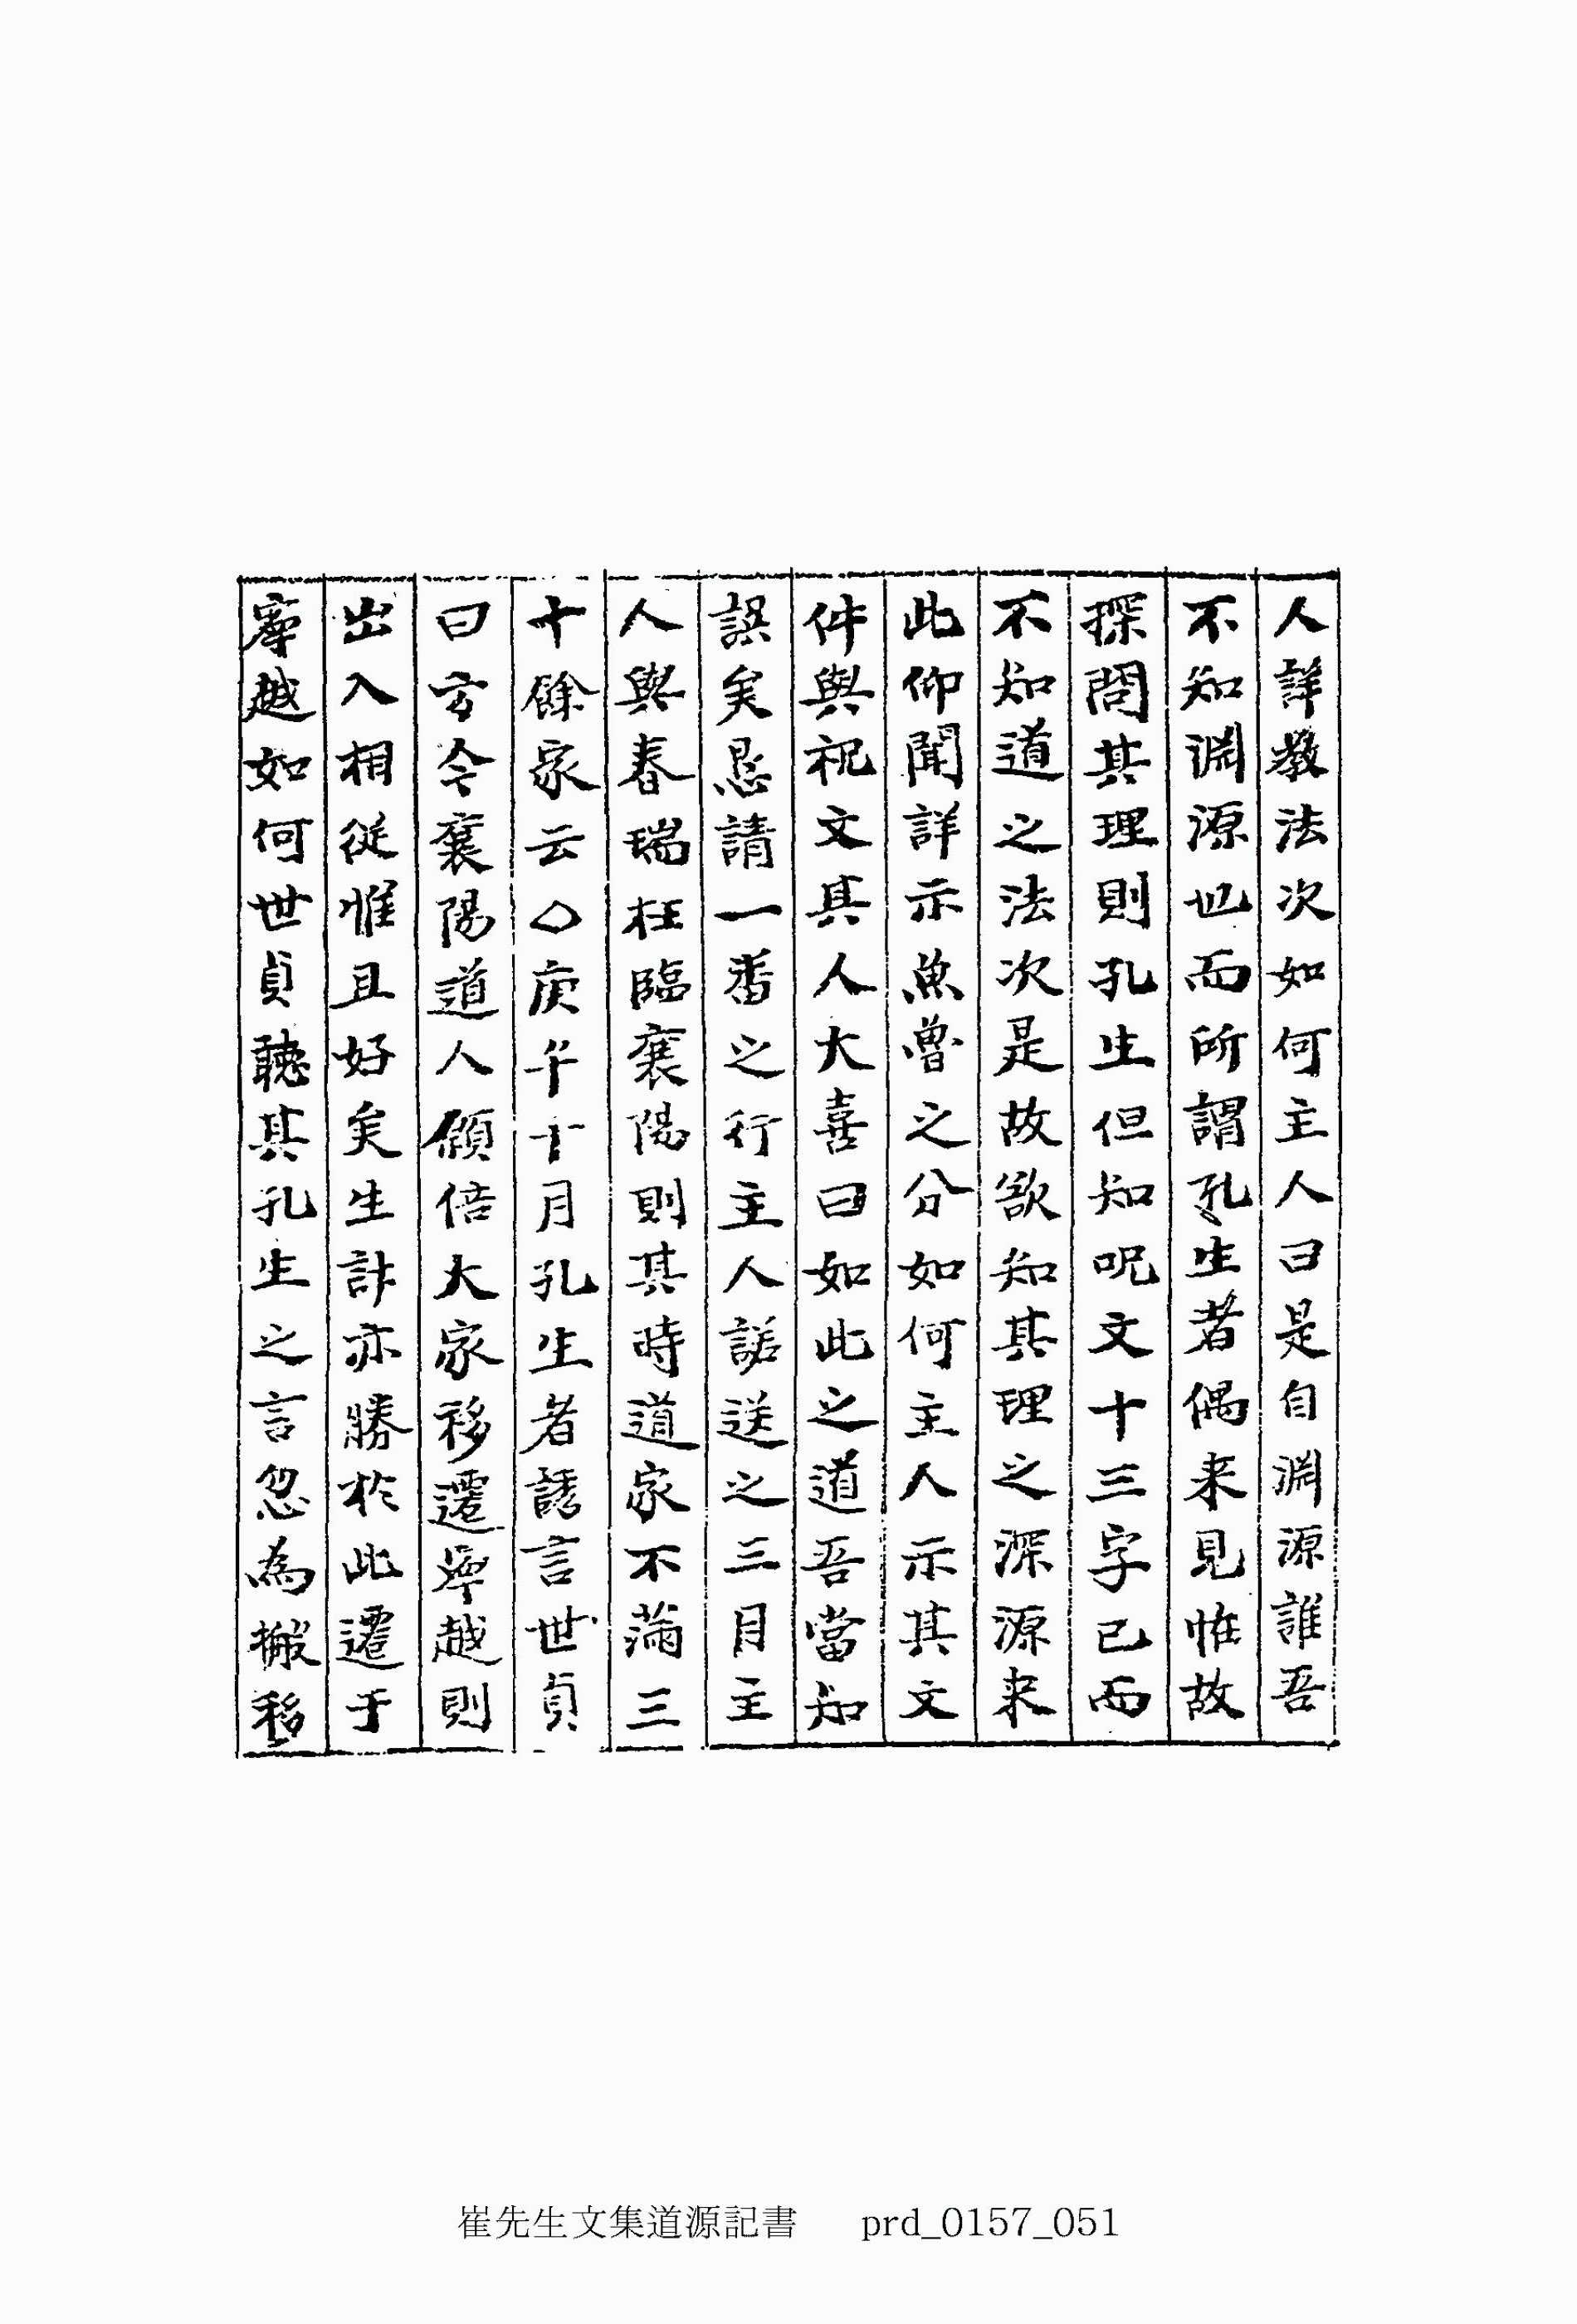 人詳敎法次如何主人曰是自淵源誰吾
不知淵源也而所謂孔生者偶来見惟故
探問其理則孔生但知呪文十三字已而
不知道之法次是故欲知其理之深源来
此仰聞詳示魚魯之分如何主人示其文
件與祝文其人大喜曰如此之道吾當知
誤矣忌請一番之行主人諾送之三月主
人與春瑞枉臨襄陽則其時道家不滿三
十餘家云〇庚午十月孔生者誘言世貞
曰方今襄陽道人願倍大家移遷寧越則
出入相從惟且好矣生計亦勝於此遷于
寧越如何世貞聽其孔生之言忽為搬移
崔先生文集道源記書 prd_0157_051